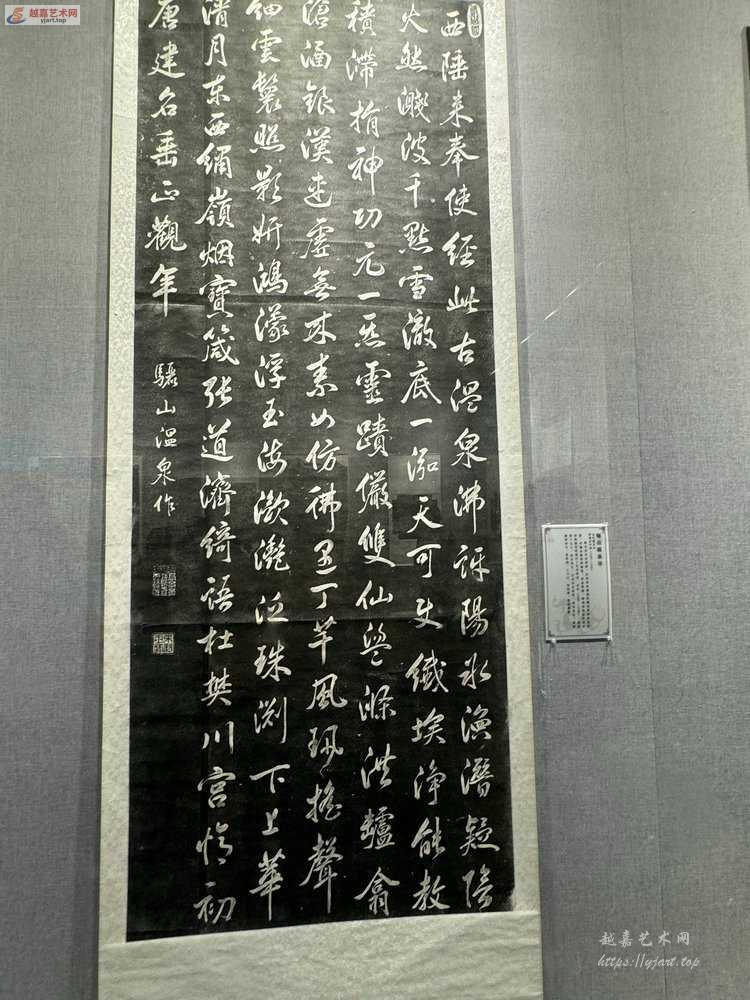 越嘉艺术网
yjart.top
西陲来奉使經此古温泉沸訝陽冰渙潛疑陰
火然濺波千點雪澈底一泓天可使纖埃淨能教
積滯捐神功元一炁靈蹟儼雙仙盥滌洪鑪翕
涵銀漢連虛無來素女仿彿遇丁芊風珮搖聲
細雲鬟照影妍鴻濛浮玉海瀲灔泛珠淵下上華
清月东西繡嶺烟寶箴张道濟綺語杜樊川宫怜初
唐建名垂正觀年
驪山温泉作
越嘉艺术网
https://yjart.top